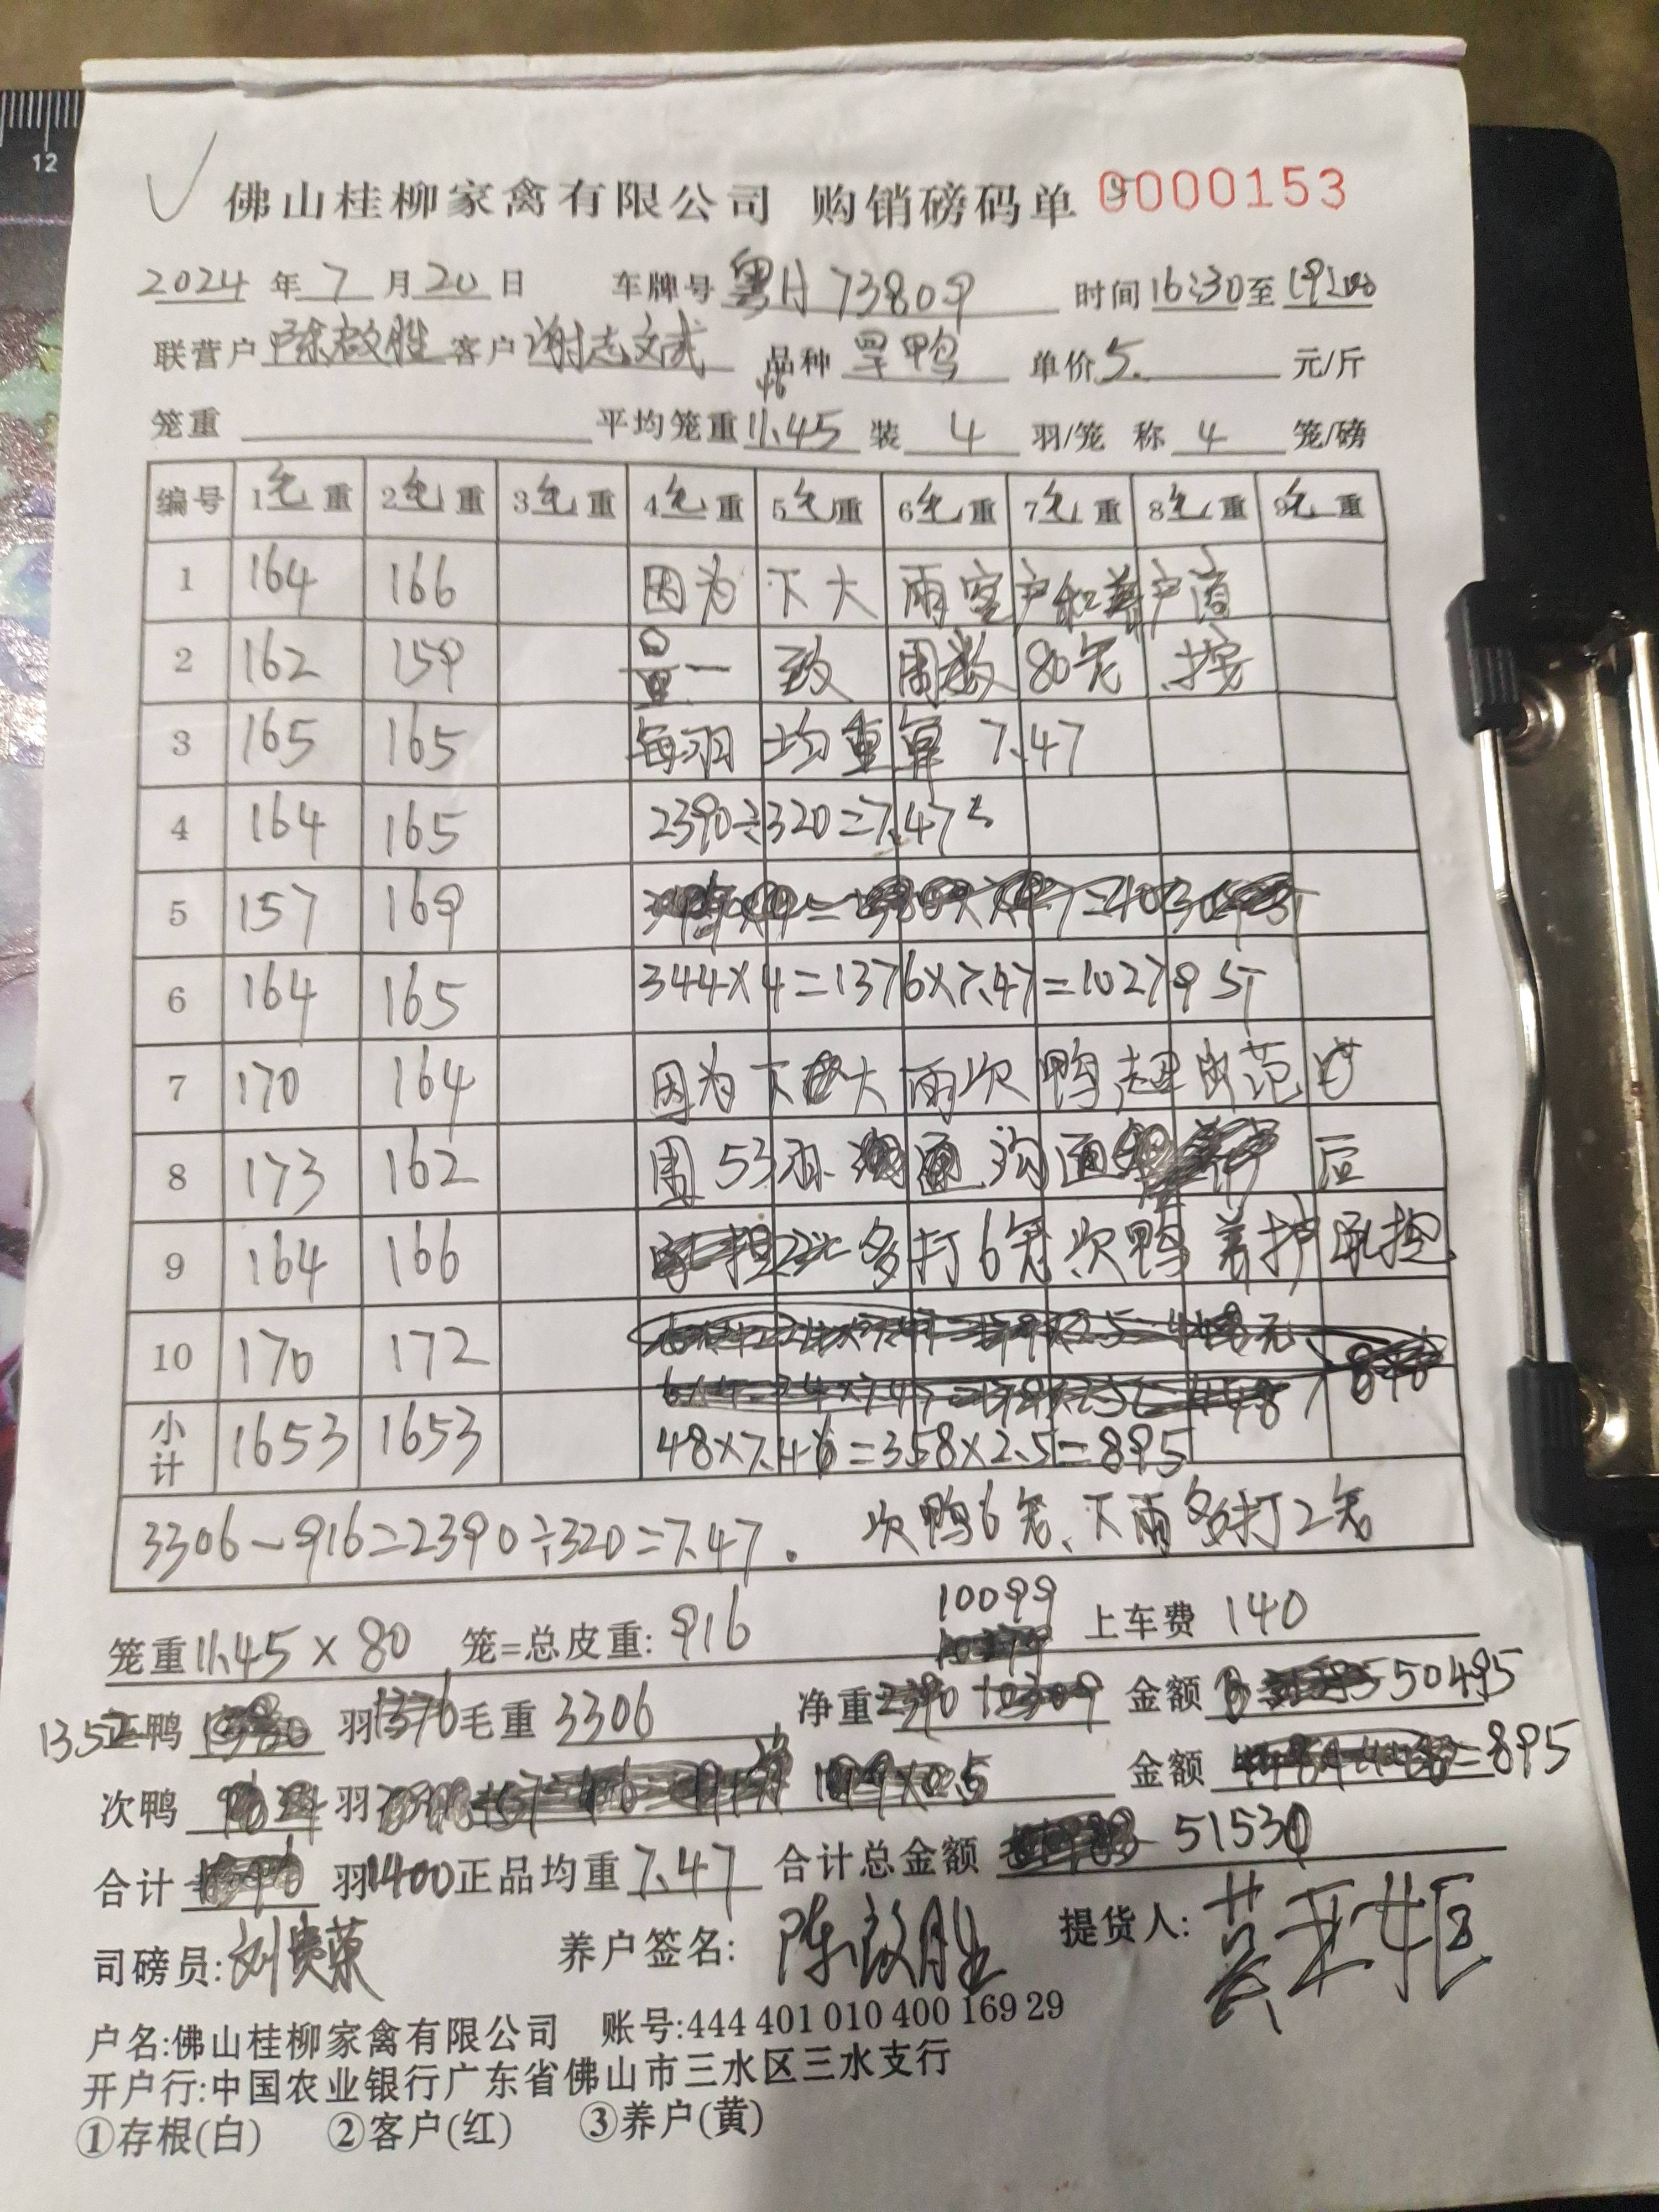 12
佛山桂柳家禽有限公司 购销磅码单 0000153
2024 年 7 月 20 日 车牌号 粤H 73809 时间 16:30 至 19:00
联营户 陈啟胜 客户 谢志文武 品种 旱鸭 单价 5. 元/斤
笼重 平均笼重 11.45 装 4 羽/笼 称 4 笼/磅
编号 1毛重 2毛重 3毛重 4毛重 5毛重 6毛重 7毛重 8毛重 9毛重
1 164 166 因为下大雨客户和养户商
2 162 159 量一致 周数80笼 按
3 165 165 每羽均重算 7.47
4 164 165 2390÷320=7.47斤
5 157 169
6 164 165 344×4=1376×7.47=10279斤
7 170 164 因为下大雨次鸭超出范
8 173 162 围 53羽 沟通 后
9 164 166 多打6笼次鸭 养护承担
10 170 172
小计 1653 1653 48×7.46=358×2.5=895
3306-916=2390÷320=7.47. 次鸭6笼、下雨多打2笼
笼重 11.45 × 80 笼=总皮重: 916 10099 上车费 140
1352 正鸭 羽 1376 毛重 3306 净重 2390 金额 50495
次鸭 羽 金额 =895
合计 羽 1400 正品均重 7.47 合计总金额 51530
司磅员: 刘贵荣 养户签名: 陈啟胜 提货人:
户名:佛山桂柳家禽有限公司 账号:444 401 010 400 169 29
开户行:中国农业银行广东省佛山市三水区三水支行
①存根(白) ②客户(红) ③养户(黄)